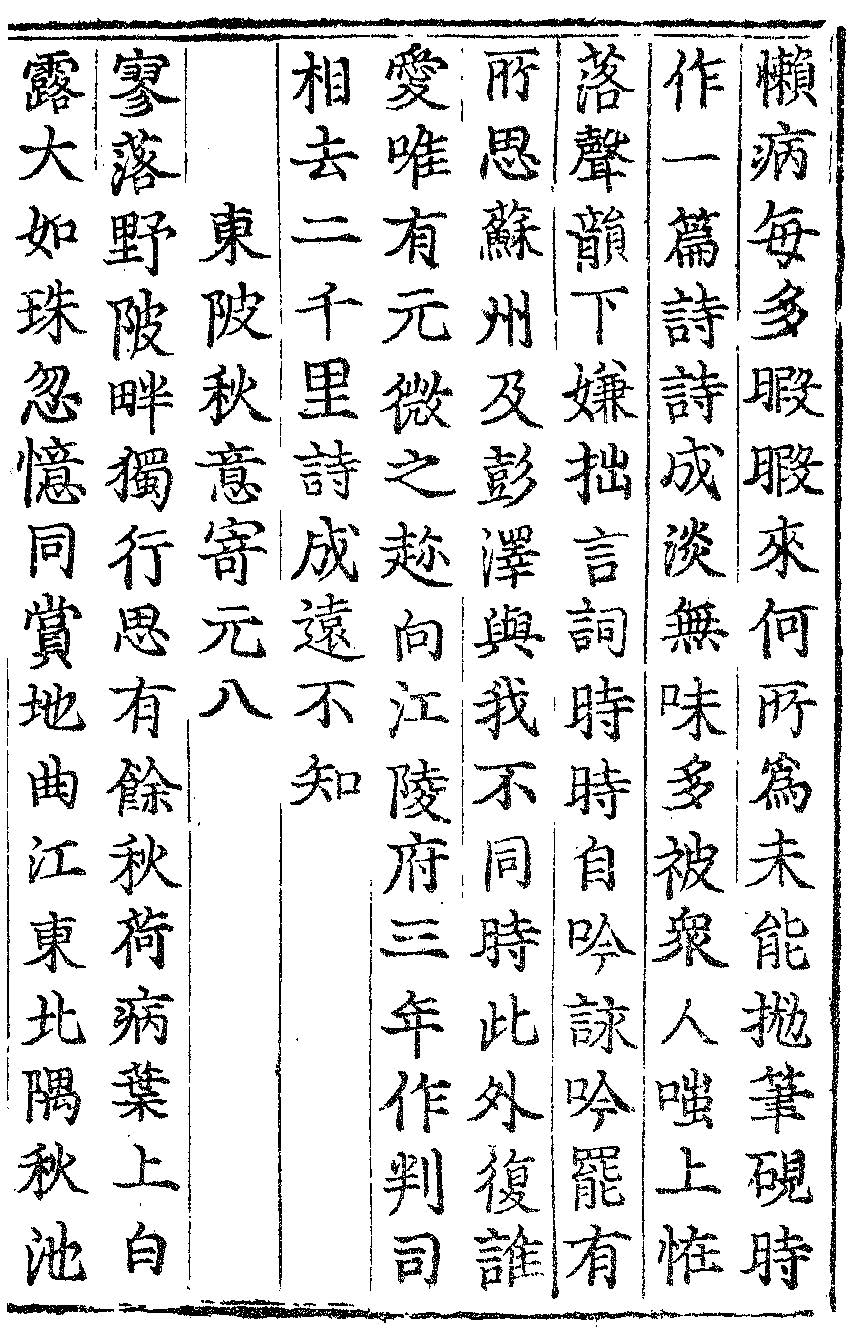 懶病每多暇暇來何所為未能拋筆硯時
作一篇詩詩成淡無味多被衆人嗤上恠
落聲韻下嫌拙言詞時時自吟詠吟罷有
所思蘇州及彭澤與我不同時此外復誰
愛唯有元微之趂向江陵府三年作判司
相去二千里詩成遠不知
東陂秋意寄元八
寥落野陂畔獨行思有餘秋荷病葉上白
露大如珠忽憶同賞地曲江東北隅秋池